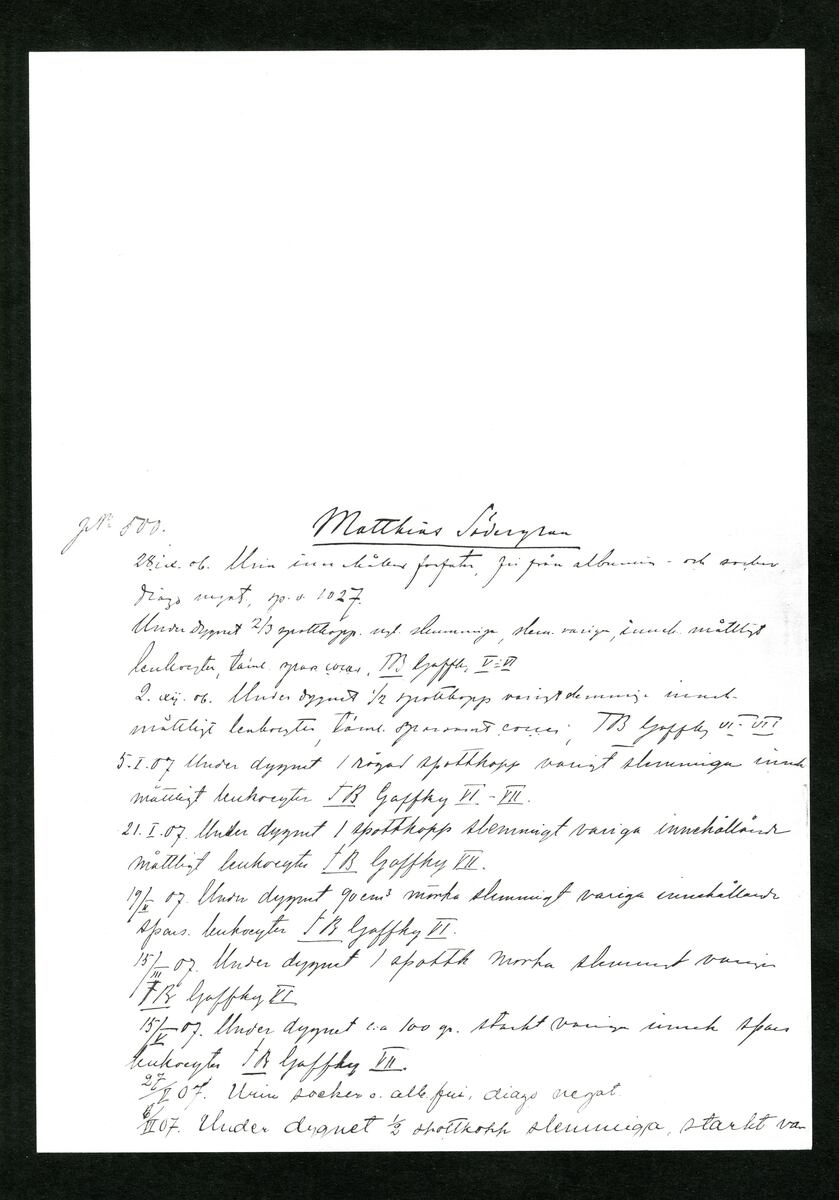 № 500.
Matthias Södergran
28.ix. 06. Urin innehåller fosfater, fri från albumin- och socker,
diazo negat., sp. v. 1027.
Under dygnet 2/3 spottkopp. slemmiga, slem. variga, inneh. måttligt
leukocyter, täml. spars cocc., TB Gaffky V-VI
2. xij. 06. Under dygnet 1/2 spottkopp varigt slemmiga inneh.
måttligt leukocyter, täml. sparsamt cocci, TB Gaffky VI-VII
5.I.07 Under dygnet 1 rågad spottkopp varigt slemmiga inneh
måttligt leukocyter TB Gaffky VI-VII.
21.I.07. Under dygnet 1 spottkopp slemmigt variga innehållande
måttligt leukocyter TB Gaffky VII.
19/II 07. Under dygnet 90 cm³ mörka slemmigt variga innehållande
spars. leukocyter TB Gaffky VI.
15/III 07. Under dygnet 1 spottk mörka slemmigt variga
TB Gaffky VI
15/V 07. Under dygnet c:a 100 gr. starkt variga inneh spars
leukocyter TB Gaffky VII.
27/V 07. Urin socker o. alb. fri, diazo negat.
6/VI 07. Under dygnet ½ spottkopp slemmiga, starkt va-